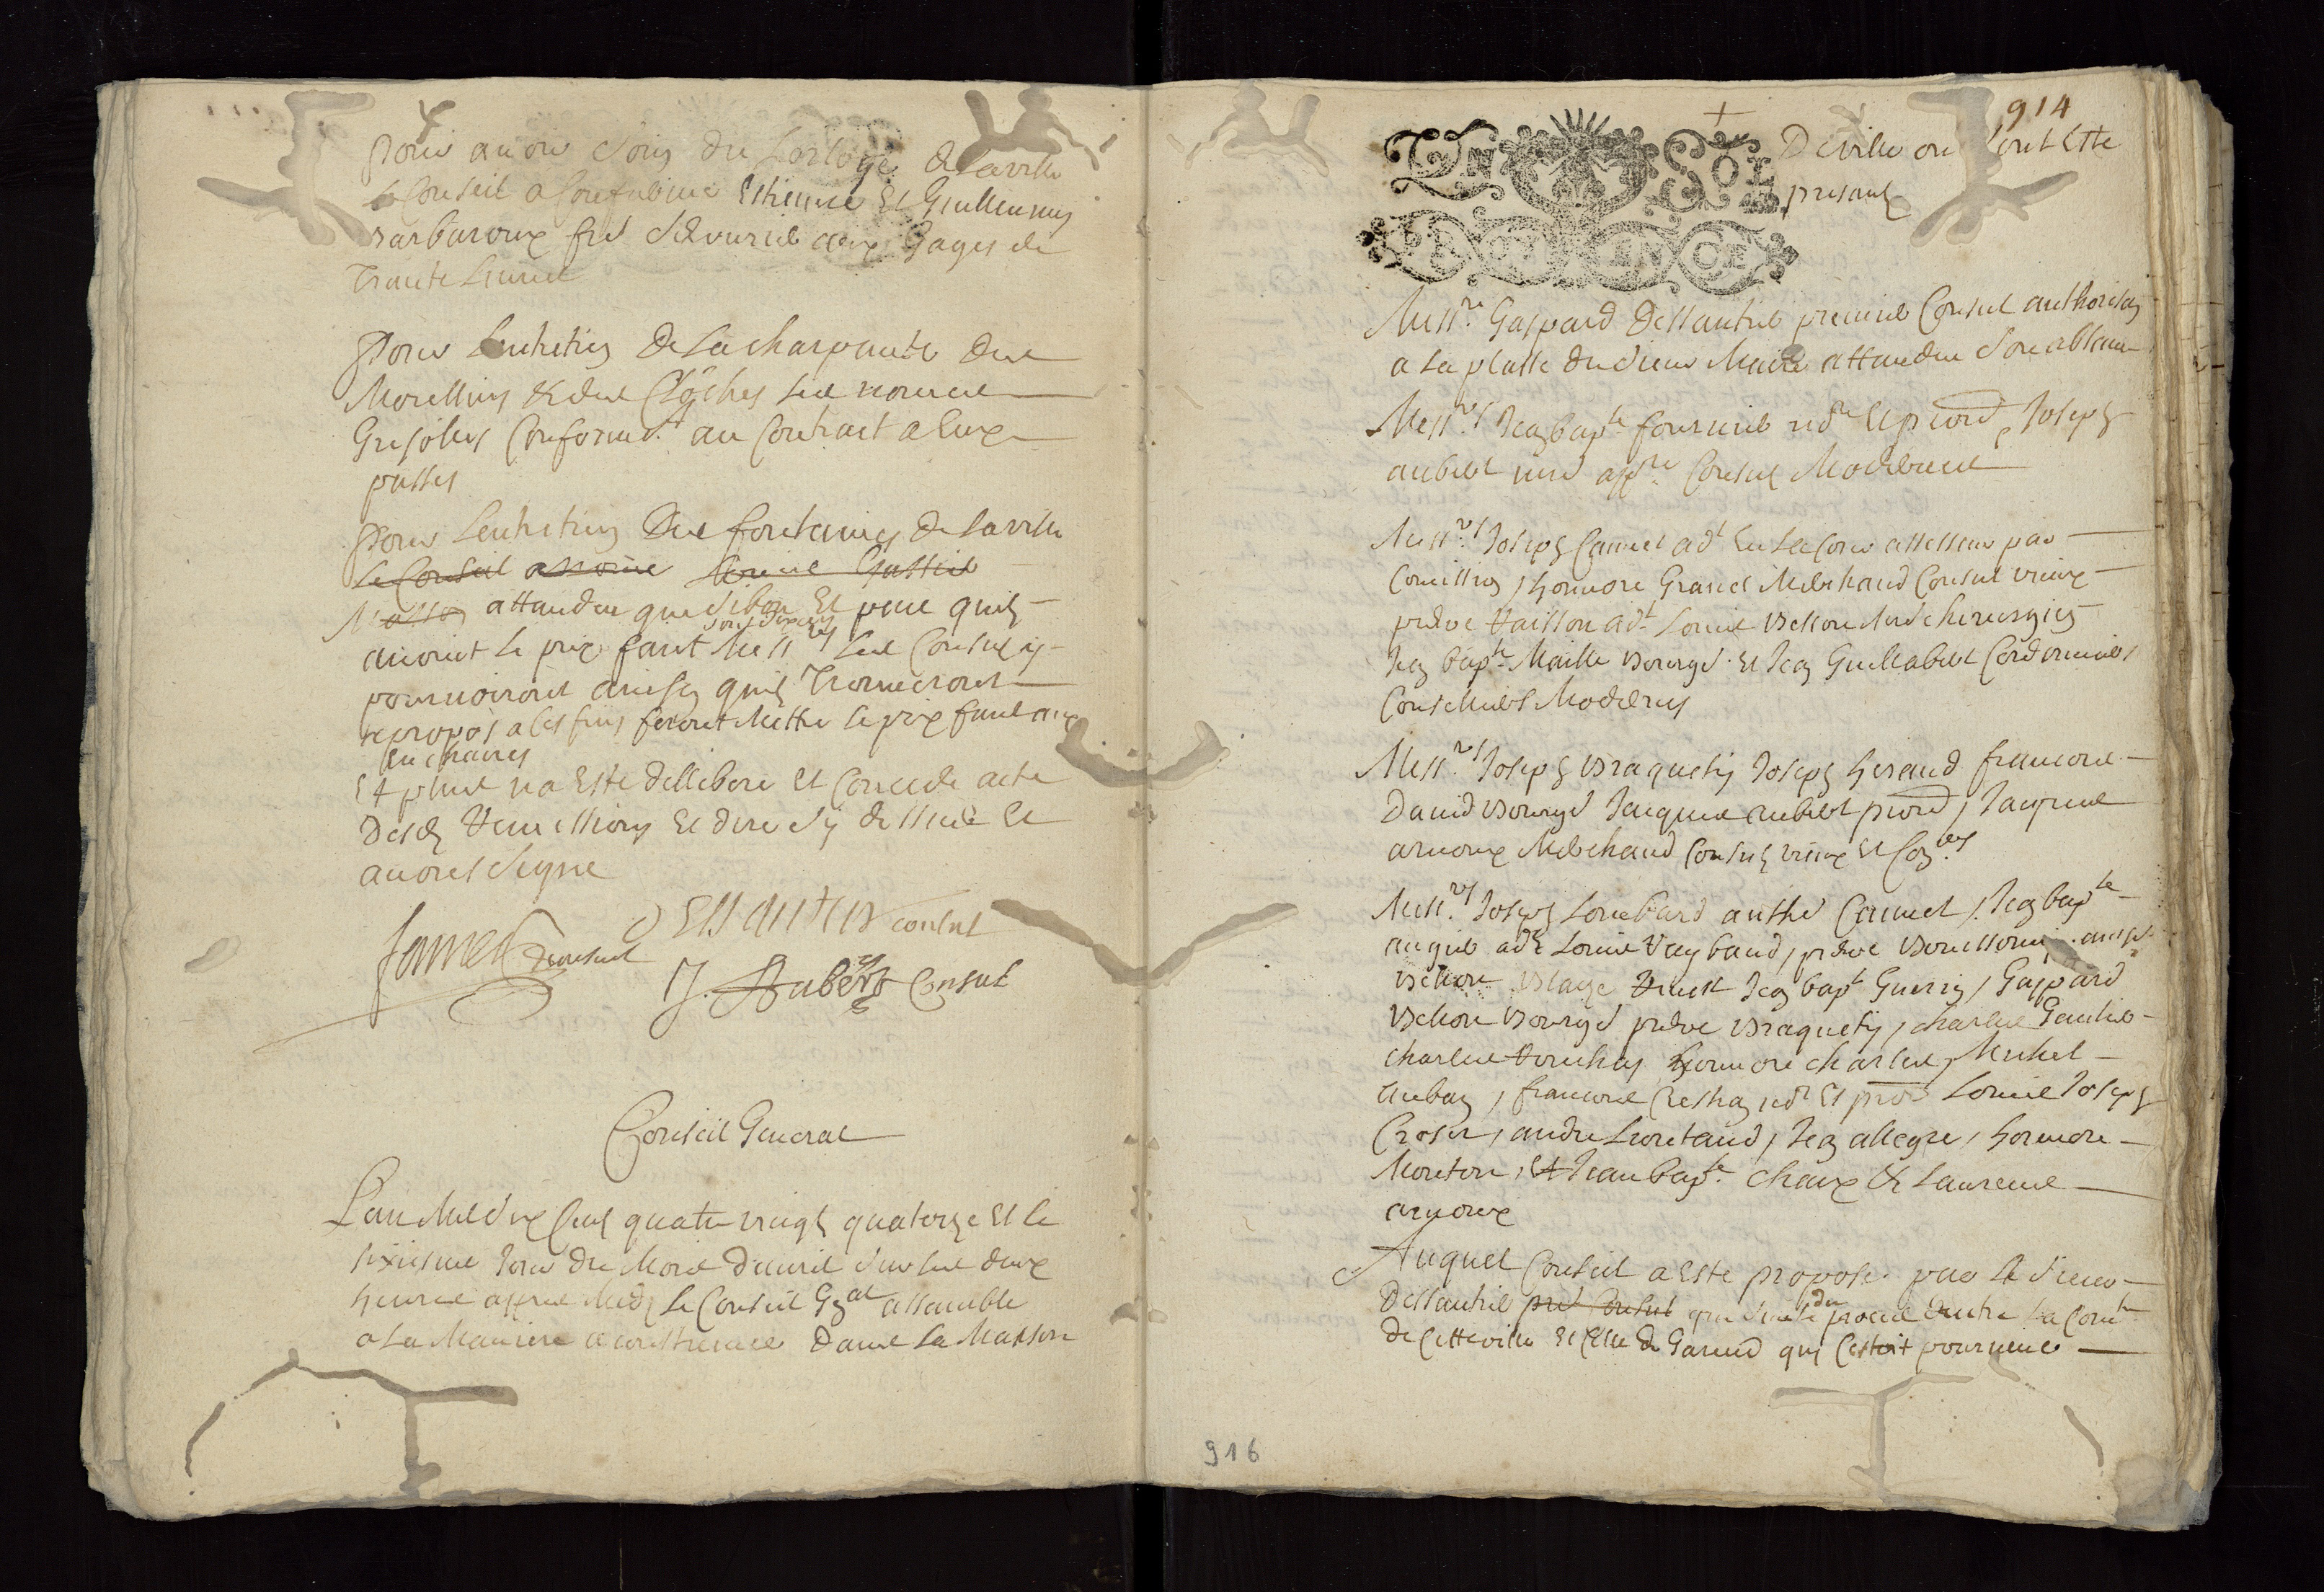 Pour avoir soin du horloge de la ville
le Conseil a Confirmé Estienne Et Guilleaume
barbaroux fre Serrurie aux Gages de
Trante Livres
Pour Lentretien De La charpante des
Moullins & des Cloches les nommes
Grisolles Conformt au Contract a Eux
passes
Pour Lentretien Des fontaines de la ville
Le Conseil a nomme Louis Gassier
attandeu que
auront le prix fait Messrs les Consulz y
pourvoiront ainsy quilz Trouveront
a propos a ces fins feront Mettre le prix fait aux
en cheres
Et plus na Esté dellibere Et Concede acte
Desd Remissions Et dire sy dessus Et
avons signe
fournier consul
DEssautier consul
J. Aubert Consul
Conseil General
Lan Mil six Cens quatre vingt quatorze Et le
sixiesme Jour du Mois davril sur les deux
heures appres Midy Le Conseil Gnal assamble
a La Maniere acoustumee Dans La Maison
914
De ville ou sont Este
presants
UN SOL
PROVENCE
Messre Gaspard Dessautier premier Consul authorisan
a La plasse du sieur Maire attandeu son absance
Messrs Jean bapte fournier ndre Et procr Joseph
aubert md appre Consulz Modernes
Messrs Joseph Camet adt En La Cour assesseur par
Comission, honnore Granet Merchand Consul vieux
pierre Vaisson adt Louis bellon Mre chirurgien
Jean bapte Maille bourgs Et Jean Guillabert Cordonnier
Conselliers Modernes
Messrs Joseph braquety Joseph heraud francois
David bourgs Jacques aubert procr, Jacques
arnoux Merchand Consulz vieux Et Conrs
Messrs Joseph Lombard autre Camet, Jean bapte
augier adt Louis Raybaud, pierre
bellon blaise Jean bapt Guerin, Gaspard
bellon bourgs pierre braquety, charles Gautier
charles honnore charles, Michel
auban, francois ndre Et procr Louis Joseph
Crosin, andre Lioutaud, Jean allegre, honnore
Mouton, Et Jean bapte chaix & Laurens
arnoux
Auquel Conseil a Este propose par Le Sieur
Dessautier pmr Consul que suite du proces Dentre La Comte
de Cette ville Et Celle de Gareoud qui Cestoit poursuivi
916